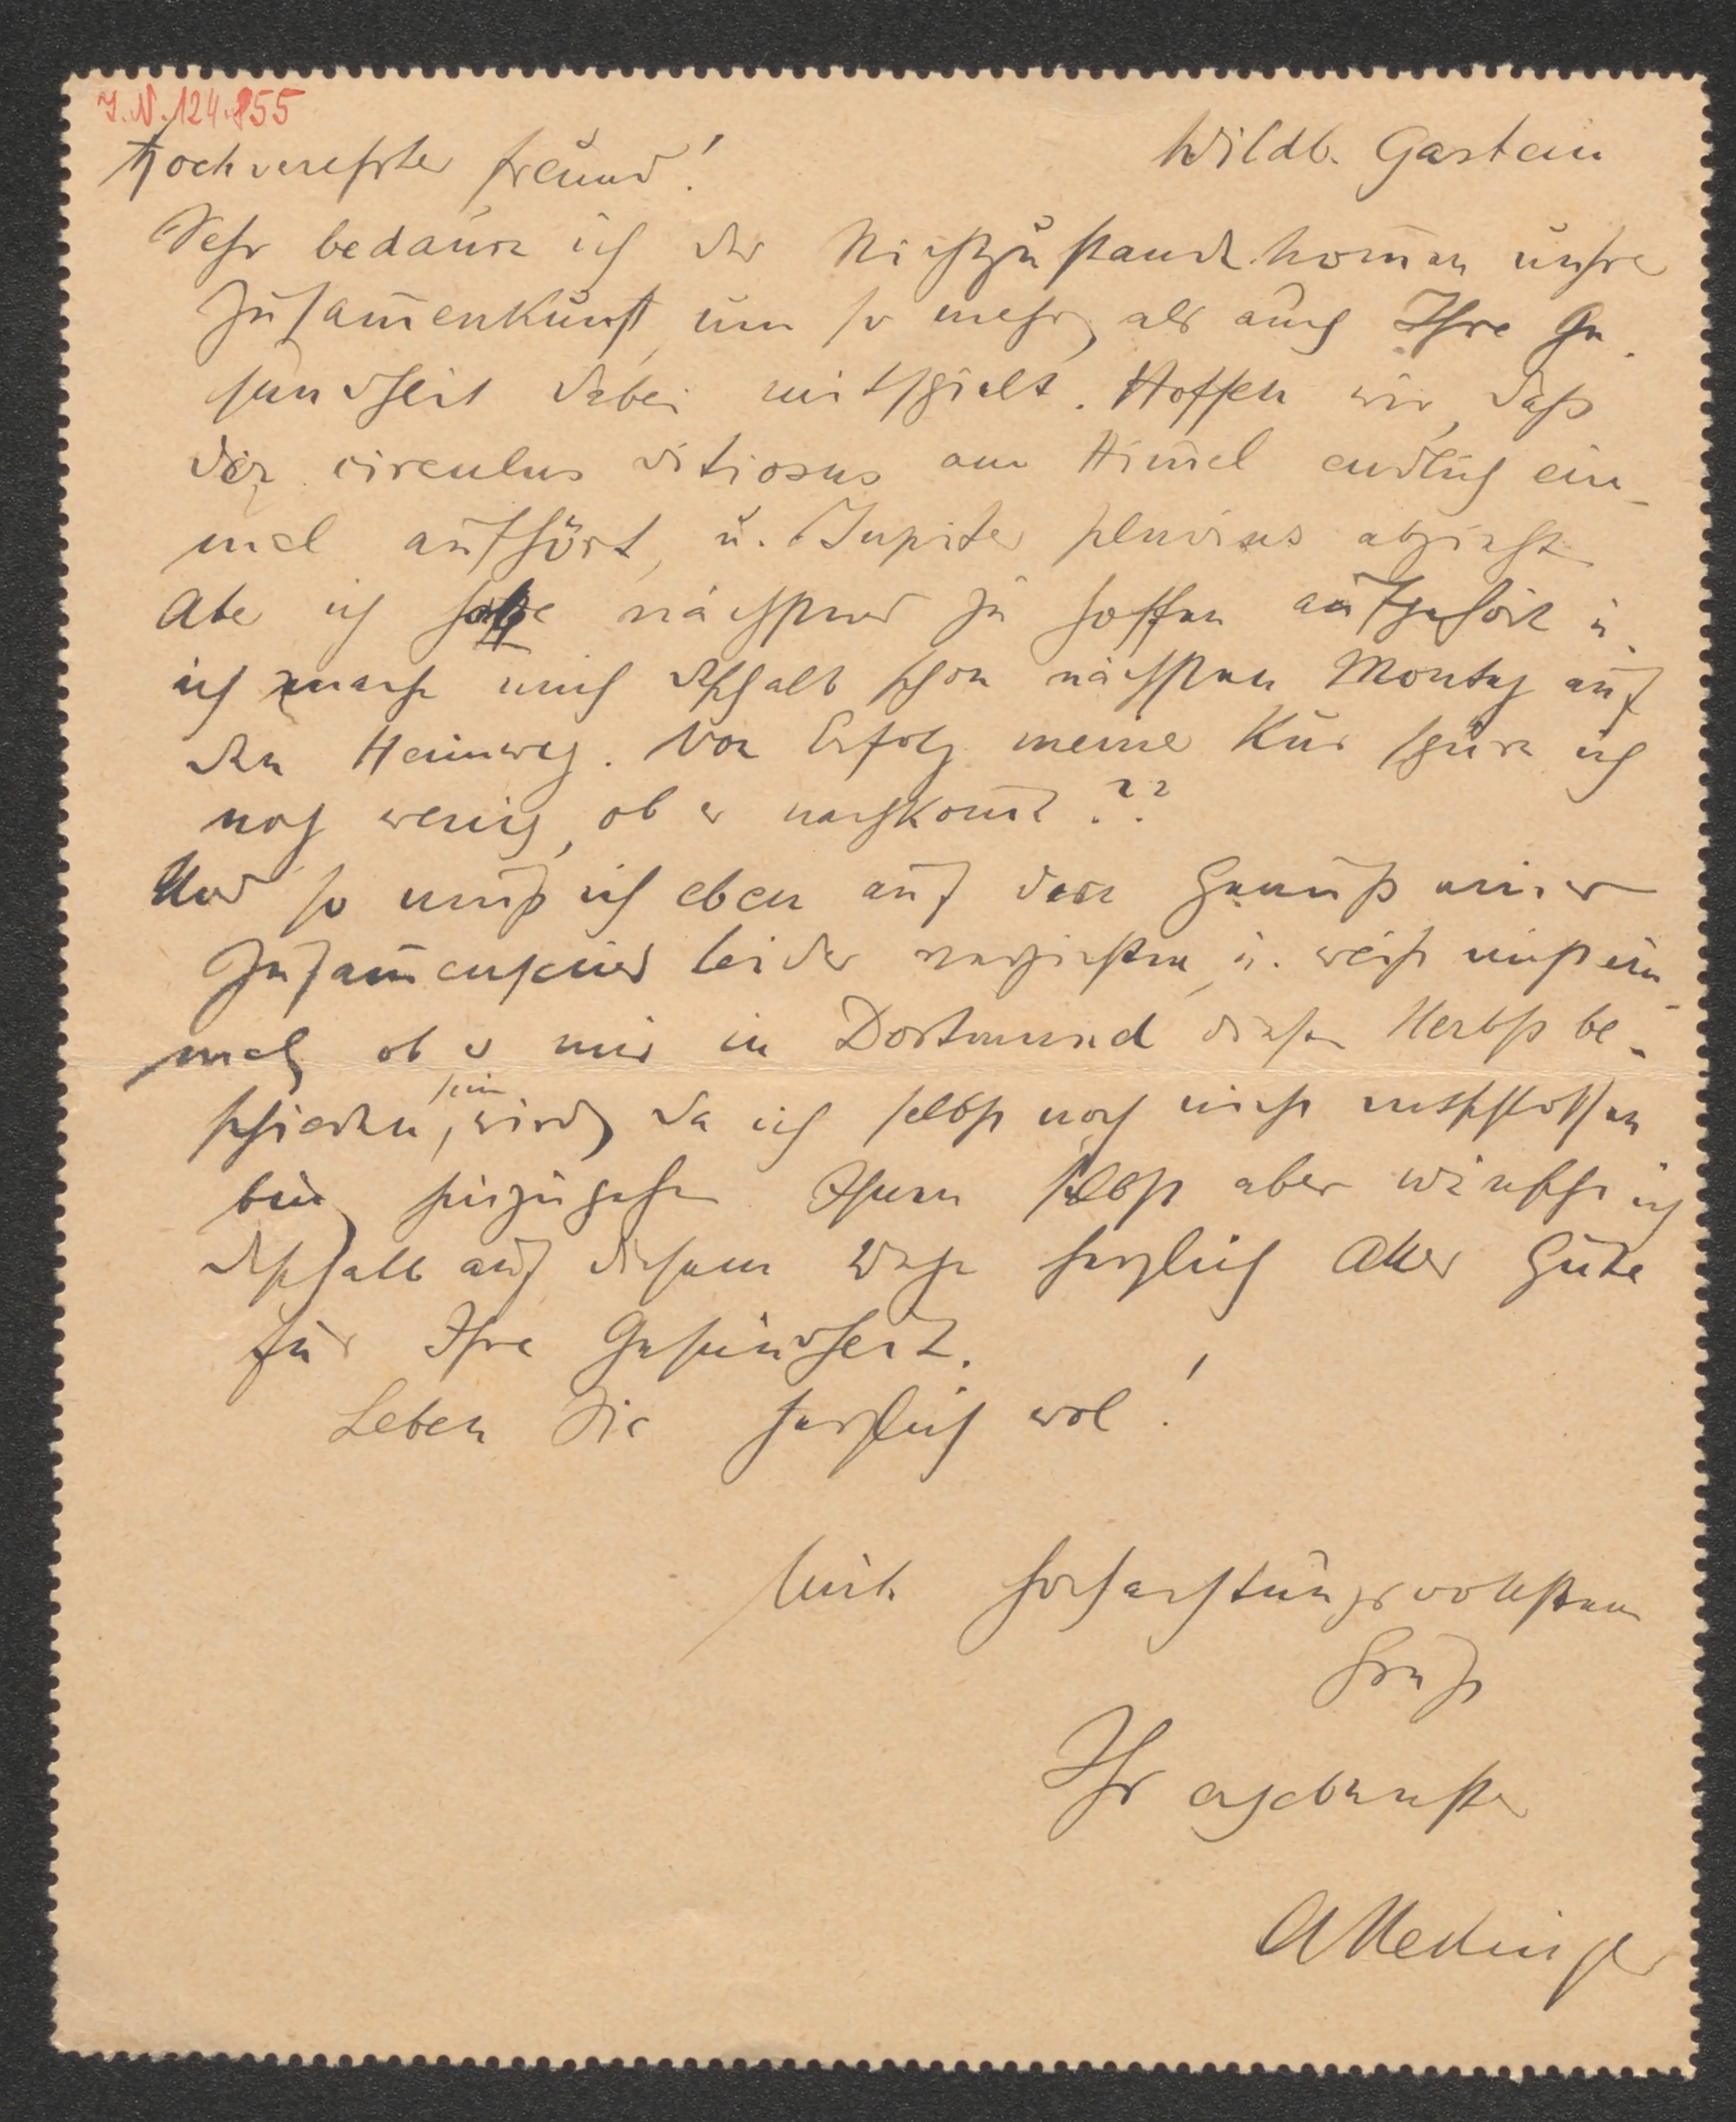 I.N. 124.855
Wildb. Gastein
Hochverehrter Freund!
Sehr bedaure ich das Nichtzustandekom̄en unsre
Zusam̄enkunft, um so mehr, als auch Ihre Ge-
sundheit dabei mitspielt. Hoffen wir, daß
der circulus vitiosus am Him̄el endlich ein-
mal aufhört, u. Jupiter pluvius abzieht
Aber ich habe zu hoffen aufgehört u.
ich mache mich deßhalb schon nächsten Montag auf
den Heimweg. Von Erfolg meiner Kur spüre ich
noch wenig, ob er nachkom̄t??
Und so muß ich eben auf den Genuß eines
Zusam̄enseins leider verzichten, u. weiß nicht ein-
mal, ob es mir in Dortmund diesen Herbst be-
schieden, sein wird, da ich selbst noch nicht entschlossen
bin, hinzugehen Ihnen selbst aber wünsche ich
deßhalb auf diesem Wege herzlich Alles Gute
für Ihre Gesundheit.
Leben Sie herzlich wol!
Mit hochachtungsvollstem
Gruß
Ihr ergebenster